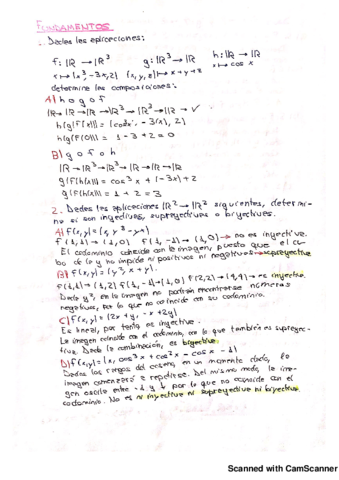 FUNDAMENTOS
1. Dadas las aplicaciones:
f: ℝ → ℝ³ g: ℝ³ → ℝ h: ℝ → ℝ
x ↦ (x³, -3x, 2) (x, y, z) ↦ x + y + z x ↦ cos x
determine las composiciones:
A) h o g o f
h(g(f(0))) = 1 - 3 + 2 = 0
B) g o f o h
ℝ → ℝ → ℝ³ → ℝ
g(f(h(x))) = cos³ x + (-3x) + 2
g(f(h(x))) = 1 + 2 = 3
2. Dadas las aplicaciones ℝ² → ℝ² siguientes, determine
si son inyectivas, suprayectivas o biyectivas.
A) f(x,y) = (x, y³ - yx)
f(1,1) → (1,0) f(1,-1) → (1,0) → no es inyectiva.
El codominio coincide con la imagen, puesto que el cu-
bo de la y no impide ni positivos ni negativos → suprayectiva
B) f(x,y) = (y², x + y).
f(1,1) → (1,2) f(1,-1) → (1,0) f(2,2) → (4,4) → es inyectiva.
Dado y², en la imagen no podrán encontrarse números
negativos, por lo que no coincide con su codominio.
C) f(x,y) = (2x + y, -x + 2y)
Es lineal, por tanto es inyectiva.
La imagen coincide con el codominio, con lo que también es suprayec-
tiva. Dada la combinación, es biyectiva.
D) f(x,y) = (x, cos³ x + cos² x - cos x - 1)
Dados los rangos del coseno, en un momento dado, la
imagen comenzará a repetirse. Del mismo modo, la ima-
gen oscila entre -1 y 1, por lo que no coincide con el
codominio. No es ni inyectiva ni suprayectiva ni biyectiva.
Scanned with CamScanner